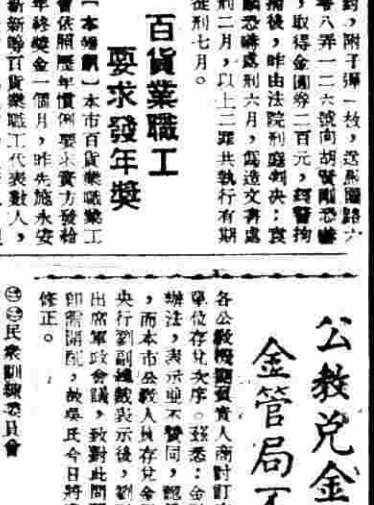 對，附子彈一枚，送馬路六
零八弄一二六號向胡賢剛恐嚇
，取得金圓券二百元，經警拘
捕後，昨由法院刑庭判決：袁
麟恐嚇處刑六月，偽造文書處
刑二月，以上二罪共執行有期
徒刑七月。
百貨業職工
要求發年獎
【本埠訊】本市百貨業職業工
會依照歷年慣例要求資方發給
年終獎金一個月，昨先施永安
新新等百貨業職工代表數人，
公教兌金
金管局不
各公教機關負責人商討訂
單位存兌次序。茲悉：金
辦法，表示並不贊同，認
，而本市公教人員存兌金
央行劉副總裁表示後，劉
出席軍政會議，致對此問
即需開配，故吳氏今日將
修正。
㊂㊂民眾訓練委員會